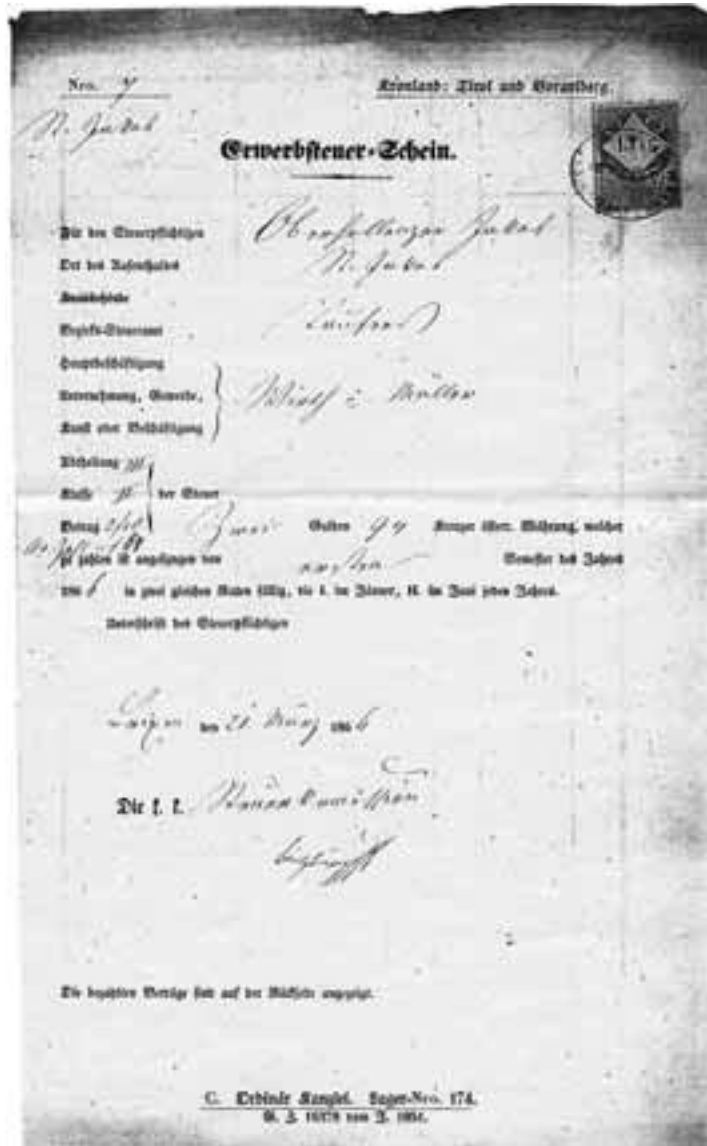 Nro. 7
Kronland: Tirol und Vorarlberg.
St. Jakob
Erwerbsteuer-Schein.
Für den Steuerpflichtigen Jakob
Ort des Aufenthaltes St. Jakob
Bezirks-Steueramt Taufers
Hauptbeschäftigung
Unternehmung, Gewerbe, Wirth Müller
Kunst oder Beschäftigung
Abtheilung III
Klasse der Steuer
Betrag Zwei Gulden 94 Kreuzer österr. Währung, welcher
zu zahlen ist angefangen vom ersten Semester des Jahres
1866 in zwei gleichen Raten fällig, die I. im Jänner, II. im Juni jeden Jahres.
Unterschrift des Steuerpflichtigen
den 21 März 1866
Die k. k.
Die bezahlten Beträge sind auf der Rückseite angezeigt.
C. Lager-Nro. 174.